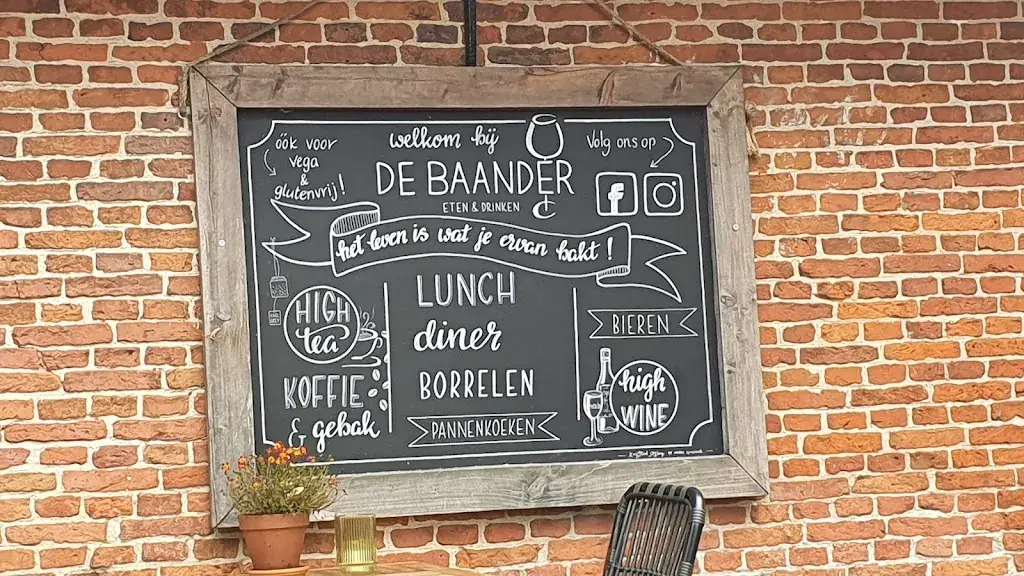 óók voor
vega
&
glutenvrij!
welkom bij
DE BAANDER
ETEN & DRINKEN
Volg ons op
f
het leven is wat je ervan bakt!
HIGH
tea
KOFFIE
& gebak
LUNCH
diner
BORRELEN
PANNENKOEKEN
BIEREN
high
WINE